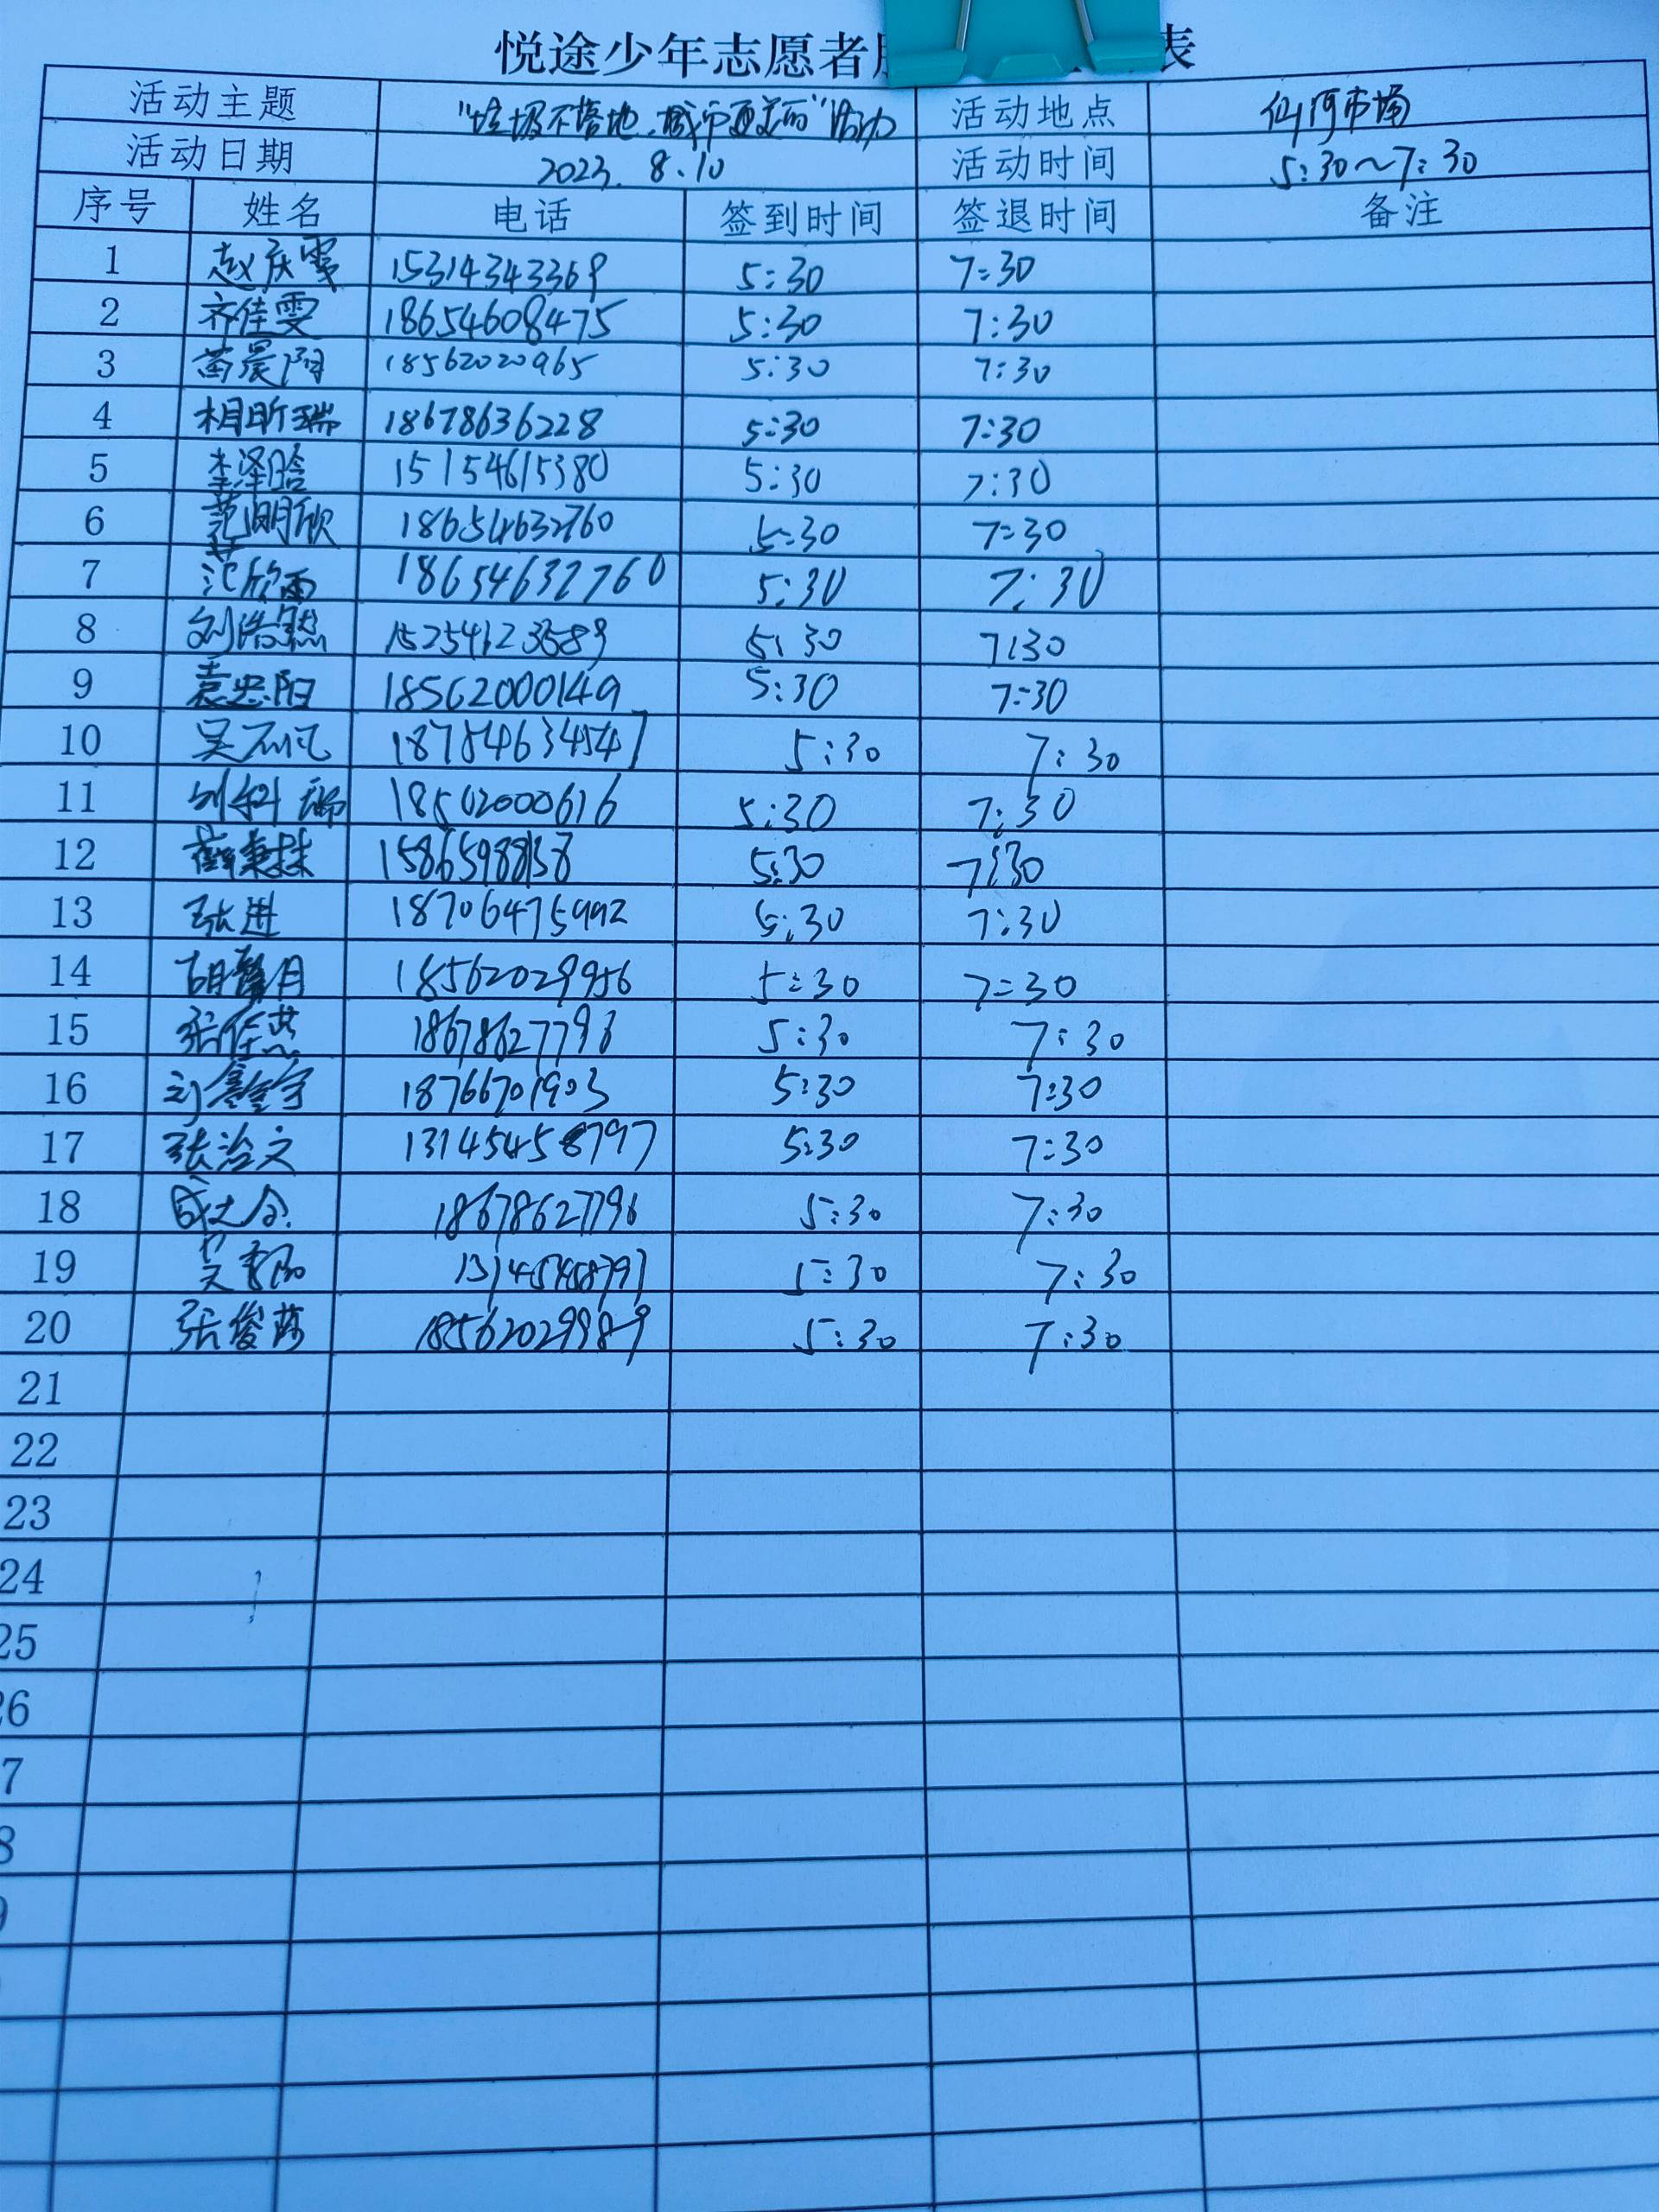 悦途少年志愿者 表
活动主题 "垃圾不落地,城市更美丽"活动 活动地点 仙河市场
活动日期 2023. 8.10 活动时间 5:30~7:30
序号 姓名 电话 签到时间 签退时间 备注
1 赵庆雯 15314343369 5:30 7:30
2 齐佳雯 18654608475 5:30 7:30
3 苗晨阳 18562020965 5:30 7:30
4 相昕瑞 18678636228 5:30 7:30
5 李泽晗 15154615380 5:30 7:30
6 范明欣 18654632760 5:30 7:30
7 范欣雨 18654632760 5:30 7:30
8 刘浩然 15254123589 5:30 7:30
9 袁忠阳 18562000149 5:30 7:30
10 吴 18754634547 5:30 7:30
11 刘 18502000616 5:30 7:30
12 15865988158 5:30 7:30
13 张进 18706475992 5:30 7:30
14 胡馨月 18562029956 5:30 7:30
15 张佳慧 5:30 7:30
16 刘鑫宇 18766701903 5:30 7:30
17 张治文 13145458797 5:30 7:30
18 18678627796 5:30 7:30
19 5:30 7:30
20 张俊 18562029989 5:30 7:30
21
22
23
24
25
26
7
8
9